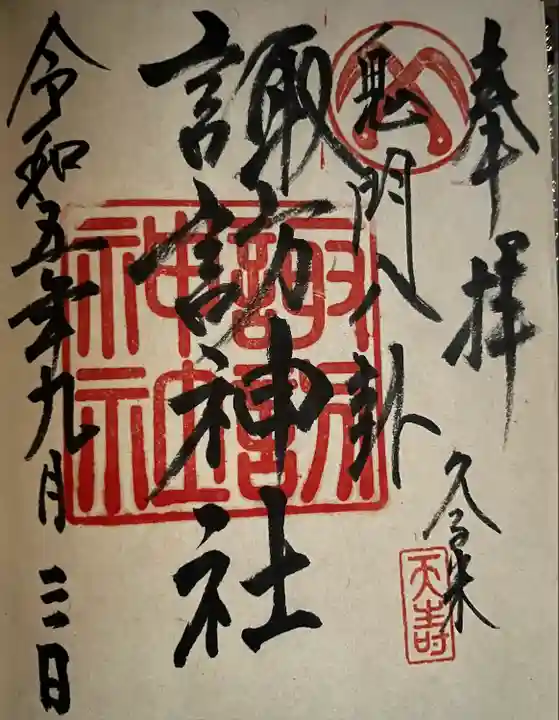 奉拝
久留米
天寿
鬼門八卦
諏訪神社
令和五年九月三日